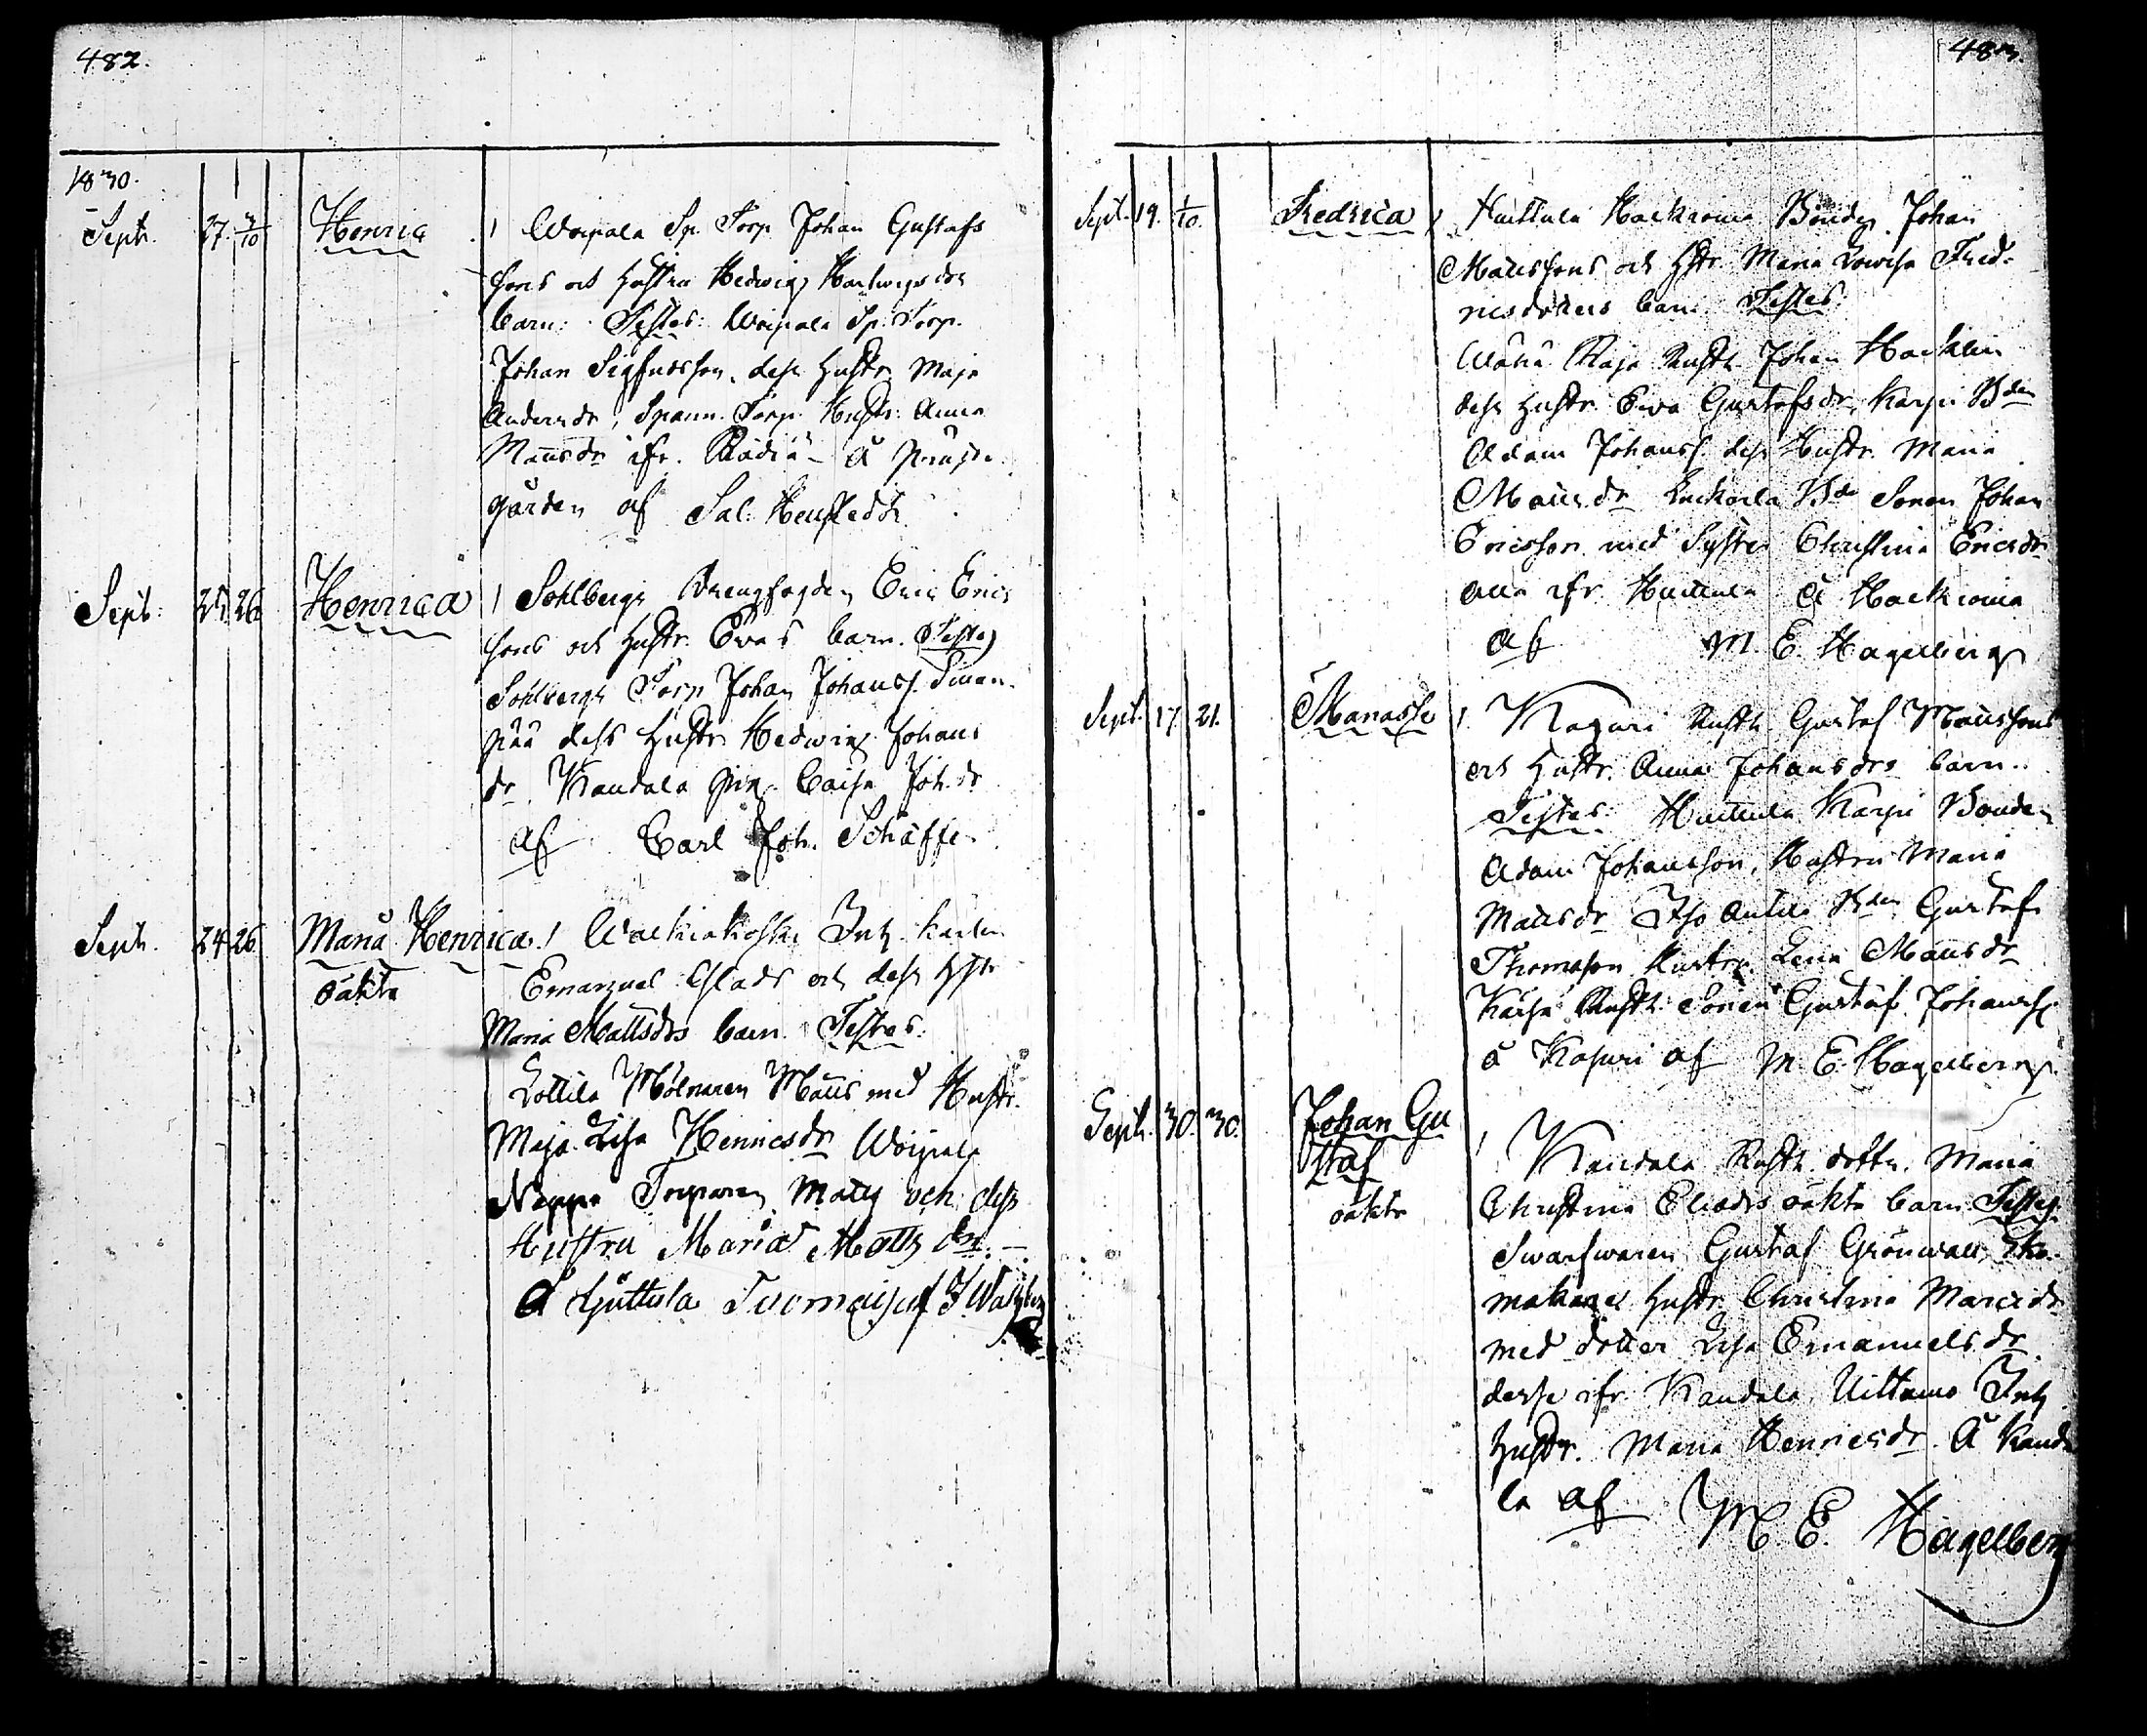 482.
1830.
Septr. 27. 3/10 Henric
1 Woipala Sp. Torp. Johan Gustafs
sons och Hustru Hedwig Hartwigsdrs
barn: Testes: Woipala Sp. Torp.
Johan Sigfridsson, dess Hustr. Maja
Andersdr, Spann. Torp. Hustr. Anna
Mattsdr ifr. å
gården af Sal. Heurstedt
Sept: 25. 26. Henrica
1 Sohlbergs Drengfogden Eric Erics
sons och Hustr. Evas barn. Testes
Sohlbergs Torp Johan Johanss.
pää dess Hustr. Hedwig Johans
dr. Kandala Pig. Caisa Joh.dr
af Carl Joh. Schäffer
Septr. 24 26. Maria Henrica
oäkta
1 Walkiakoski Inh. karlen
Emanuel och dess Hstr
Maria Mattsdrs barn. Testes:
Lottila Mölnaren Matts med Hustr.
Maja Lisa Henricsdr Woipala
Torparen Matts och dess
Hustru Maria Matts dr. –
å Huttula Tuomaisa af J. Wahlberg
483.
Sept. 19. 1/10. Fredrica
1 Huttula Hackroina Bonden Johan
Mattssons och Hstr Maria Lowisa Fred-
ricsdotters barn. Testes:
Rusth. Johan Hacklin
dess Hustr. Ewa Gustafsdr, Karpi Bden
Adam Johanss. dess Hustr. Maria
Mattsdr Bde Sonen Johan
Ericsson med Syster Christina Ericsdr
alla ifr Huttula å Hackroina
af M. E. Hagelberg
Sept. 17. 21. Manasse
1. Kaguri Rusth. Gustaf Mattssons
och Hustr. Anna Johansdrs barn..
Testes: Huttula Karpi Bonden
Adam Johansson, Hustru Maria
Mattsdr Iso Antila Bden Gustaf
Thomasson Hustru Lena Mattsdr
Rusth. Sonen Gustaf Johanss.
å Kaguri af M. E. Hagelberg.
Septr. 30. 30. Johan Gu
staf
oäkta
1 Kandala Rusth. dottr. Maria
Christina Eliasdrs oäkta barn Testes:
Swarfwaren Gustaf Grönwall, Sko-
makar Hustr. Christina Marcidr
med dotter Lisa Emanuelsdr
desse ifr. Kandala, Uittamo Inh.
Hustr. Maria Henricsdr. å Kanda
la af M. E. Hagelberg